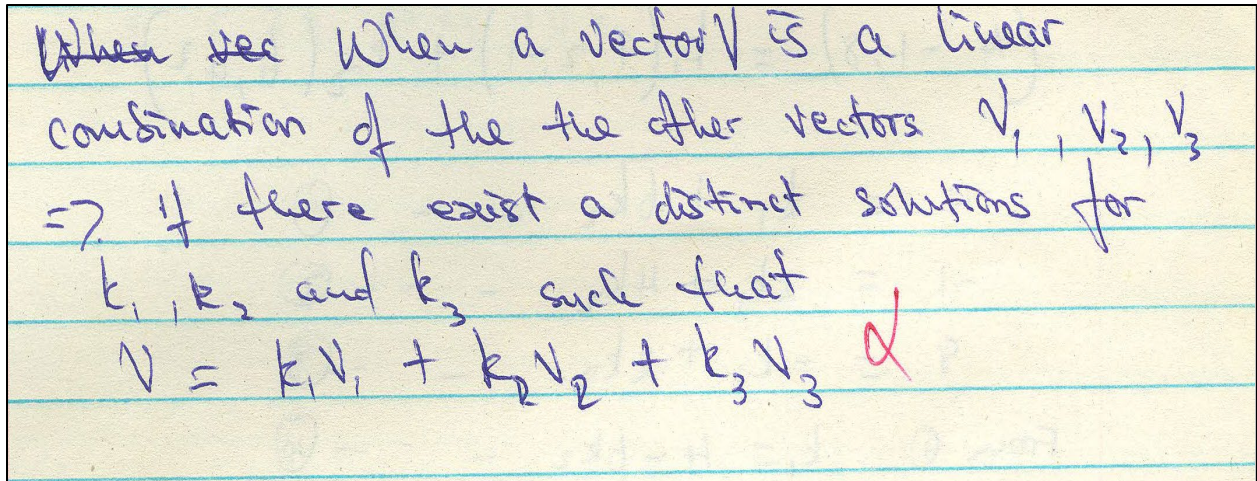 When vec When a vector V is a linear
combination of the the other vectors V₁, V₂, V₃
=> if there exist a distinct solutions for
k₁, k₂ and k₃ such that
V = k₁V₁ + k₂V₂ + k₃V₃ α